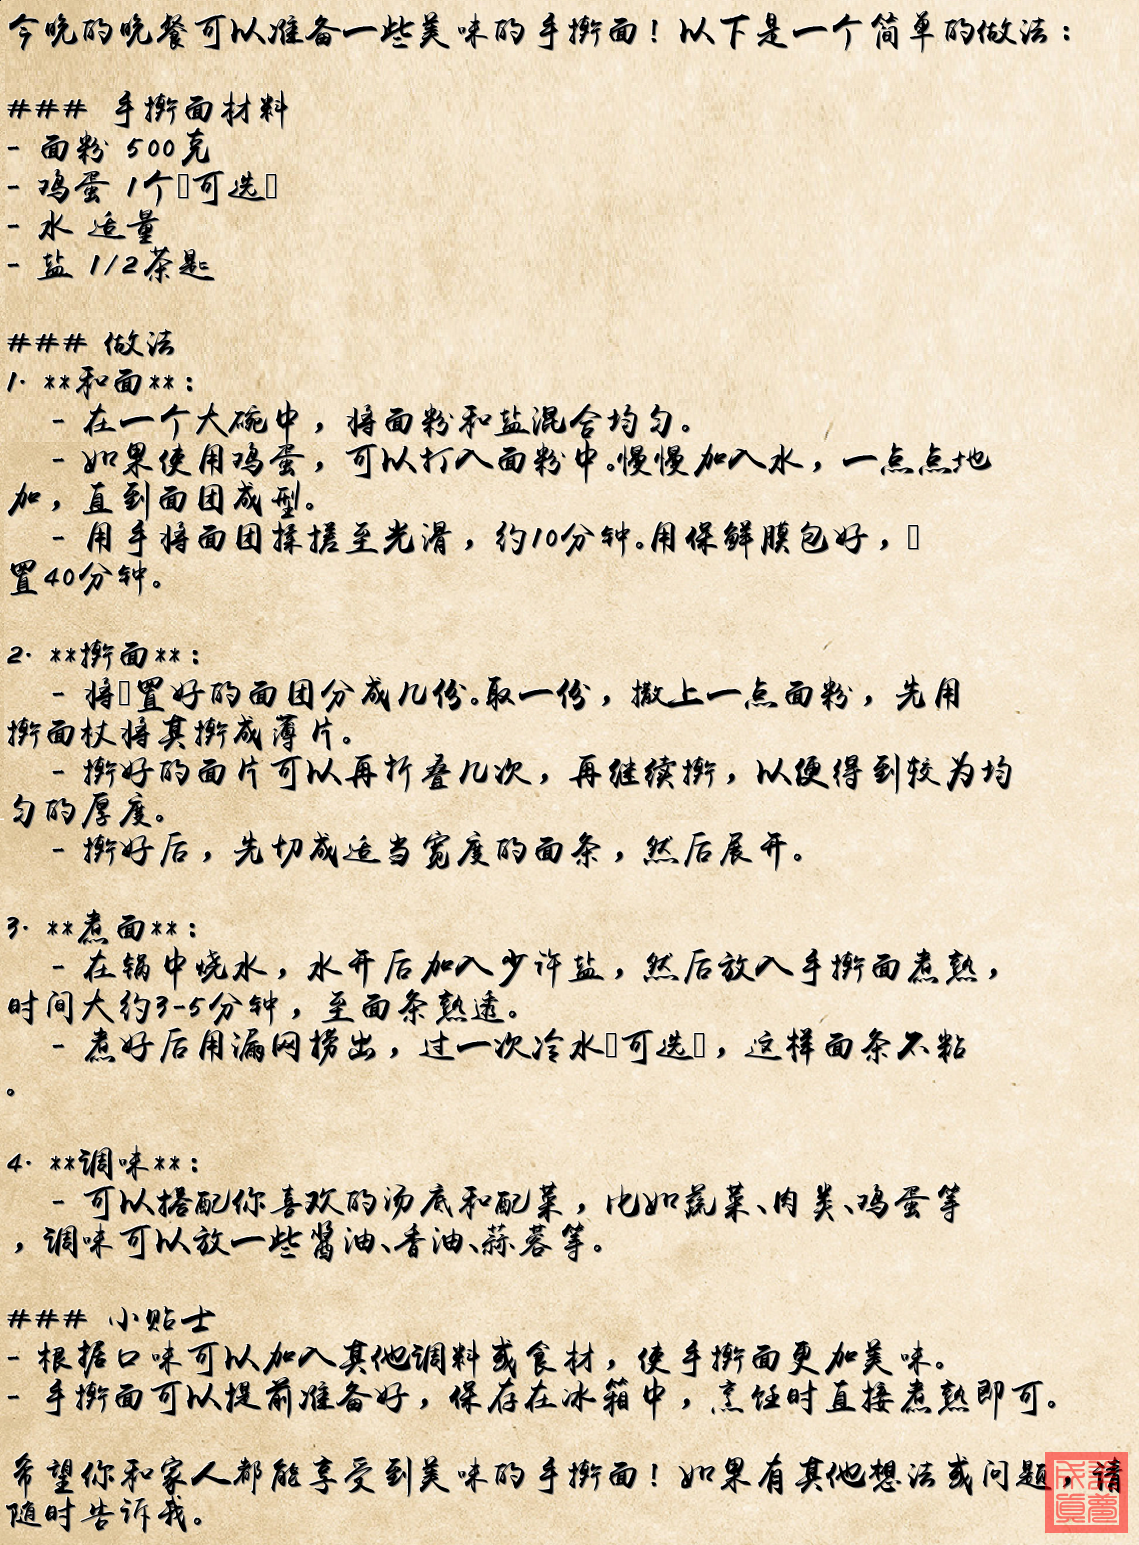 今晚的晚餐可以准备一些美味的手擀面！以下是一个简单的做法：
### 手擀面材料
- 面粉 500克
- 鸡蛋 1个可选
- 水 适量
- 盐 1/2茶匙
### 做法
1. **和面**：
- 在一个大碗中，将面粉和盐混合均匀。
- 如果使用鸡蛋，可以打入面粉中。慢慢加入水，一点点地
加，直到面团成型。
- 用手将面团揉搓至光滑，约10分钟。用保鲜膜包好，
置40分钟。
2. **擀面**：
- 将置好的面团分成几份。取一份，撒上一点面粉，先用
擀面杖将其擀成薄片。
- 擀好的面片可以再折叠几次，再继续擀，以便得到较为均
匀的厚度。
- 擀好后，先切成适当宽度的面条，然后展开。
3. **煮面**：
- 在锅中烧水，水开后加入少许盐，然后放入手擀面煮熟，
时间大约3-5分钟，至面条熟透。
- 煮好后用漏网捞出，过一次冷水可选，这样面条不粘
。
4. **调味**：
- 可以搭配你喜欢的汤底和配菜，比如蔬菜、肉类、鸡蛋等
，调味可以放一些酱油、香油、蒜蓉等。
### 小贴士
- 根据口味可以加入其他调料或食材，使手擀面更加美味。
- 手擀面可以提前准备好，保存在冰箱中，烹饪时直接煮熟即可。
希望你和家人都能享受到美味的手擀面！如果有其他想法或问题，请
随时告诉我。